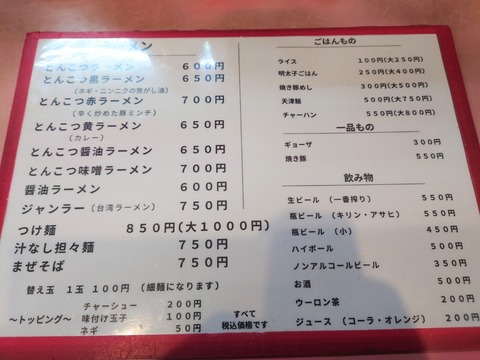 ラーメン
とんこつラーメン 600円
とんこつ黒ラーメン 650円
(ネギ・ニンニクの焦がし油)
とんこつ赤ラーメン 700円
(辛く炒めた豚ミンチ)
とんこつ黄ラーメン 650円
(カレー)
とんこつ醤油ラーメン 650円
とんこつ味噌ラーメン 700円
醤油ラーメン 600円
ジャンラー(台湾ラーメン) 750円
つけ麺 850円(大1000円)
汁なし担々麺 750円
まぜそば 750円
替え玉 1玉 100円 (細麺になります)
チャーシュー 200円
~トッピング~ 味付け玉子 100円
ネギ 50円
すべて
税込価格です
ごはんもの
ライス 100円(大250円)
明太子ごはん 250円(大400円)
焼き豚めし 300円(大500円)
天津飯 500円(大750円)
チャーハン 550円(大800円)
一品もの
ギョーザ 300円
焼き豚 550円
飲み物
生ビール (一番搾り) 550円
瓶ビール (キリン・アサヒ) 550円
瓶ビール (小) 450円
ハイボール 500円
ノンアルコールビール 350円
お酒 500円
ウーロン茶 200円
ジュース (コーラ・オレンジ) 200円